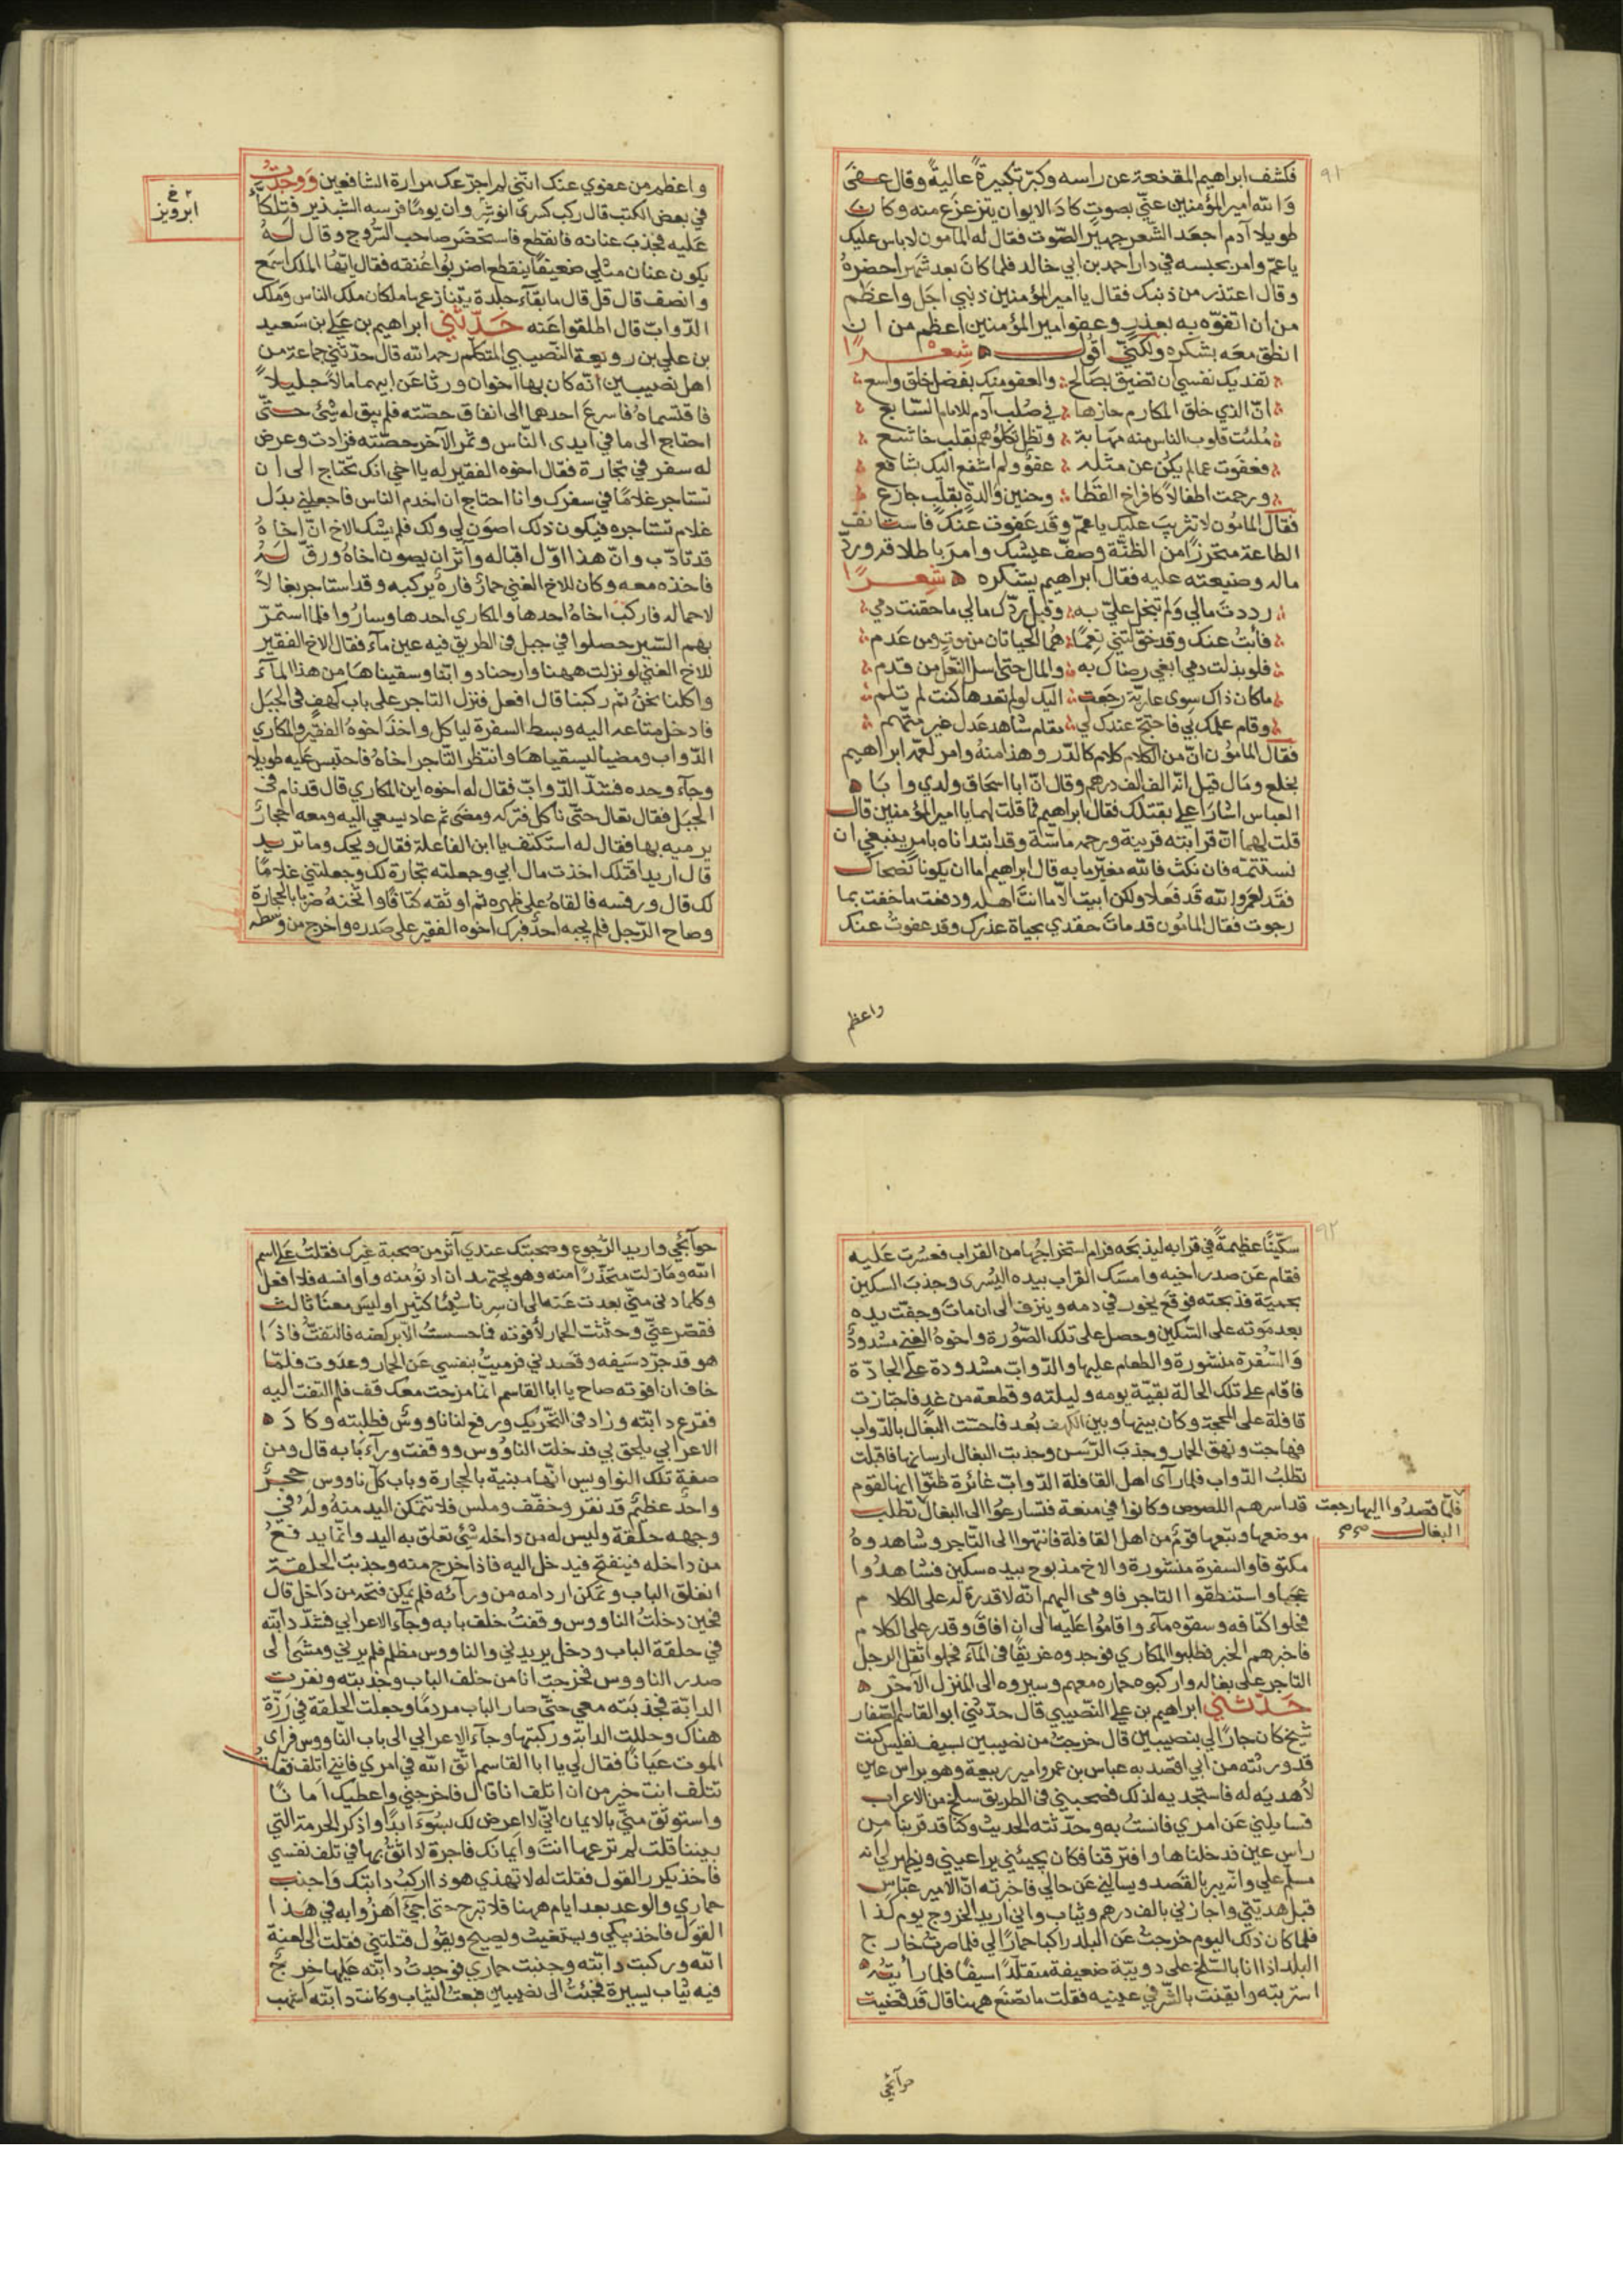 ٩١
فكشف ابراهيم المقنعة عن راسه وكبّر تكبيرةً عاليةً وقال عفى
والله امير المؤمنين عنّي بصوتٍ كاد الايوان يتزعزع منه وكان
طويلا آدم اجعد الشعر جهير الصّوت فقال له المامون لا باس عليك
يا عمّ وامر بحبسه في دار احمد بن ابي خالد فلما كان بعد شهر احضره
وقال اعتذر من ذنبك فقال يا امير المؤمنين ذنبي اجل واعظم
من ان اتفوّه به بعذرٍ وعفو امير المؤمنين اعظم من ان
انطق معه بشكره ولكنّي اقول شعرًا
تفديك نفسي ان تضيق بصالح والعفو منك بفضل خلق واسع
انّ الذي خلق المكارم حازها في صلب آدم للامام السّابع
مُلئت قلوب الناس منه مهابة وتظل تكلؤهم بقلب خاشع
فعفوت عما لم يكن عن مثله عفوٌ ولم اشفع اليك بشافع
ورحمت اطفالاً كافراخ القطا وحنين والدةٍ بقلب جازع
فقال المامون لا تثريب عليك يا عمّ وقد عفوت عنك فاستانف
الطاعة متحرزًا من الظنّة وصفّ عيشك وامر باطلاقه وردّ
ماله وضيعته عليه فقال ابراهيم يشكره شعرًا
رددت مالي ولم تبخل عليّ به وقبل ردّك مالي ما حقنت دمي
فابتُ عنك وقد خوّلتني نعمًا هما الحياتان من موت ومن عدم
فلو بذلت دمي ابغي رضاك به والمال حتى اسل النعل من قدم
ما كان ذاك سوى عاريّة رجعت اليك لو لم تعدها كنت لم تلم
وقام علمك بي فاحتجّ عندك لي مقام شاهد عدل غير متّهم
فقال المامون انّ من الكلام كلام كالدّر وهذا منه وامر لعمه ابراهيم
بخلع ومال قيل انّه الف الف درهم وقال انّ ابا اسحاق ولدي وابا
العباس اشارا عليّ بقتلك فقال ابراهيم فما قلت لهما يا امير المؤمنين قال
قلت لهما انّ قرابته قريبة ورحمه ماسّة وقد ابتداناه بامر ينبغي ان
نستتمّه فان نكث فالله مغيّر ما به قال ابراهيم اما ان يكونا نصحاك
فقد لعمرو الله قد فعلا ولكن ابيت الّا ما انت اهله ودفعت ما خفت بما
رجوت فقال المامون قد مات حقدي بحياة عذرك وقد عفوت عنك
واعظم
واعظم من عفوي عنك انّني لم اجرّعك مرارة الشافعين ووجدتُ
في بعض الكتب قال ركب كسرى انوشر وان يومًا فرسه الشبديز فتلكأ
عليه فجذب عنانه فانقطع فاستحضر صاحب السّروج وقال له
يكون عنان مثلي ضعيفًا ينقطع اضربوا عنقه فقال ايّها الملك اسمع
وانصف قال قل قال ما بقآء جلدة يتنازعها ملكان ملك الناس وملك
الدّواب قال اطلقوا عنه حدّثني ابراهيم بن علي بن سعيد
بن علي بن رويعة النّصيبي المتكلّم رحمه الله قال حدّثني جماعة من
اهل نصيبين انّه كان بها اخوان ورثا عن ابيهما مالاً جليلاً
فاقتسماهُ فاسرع احدهما الى انفاق حصّته فلم يبق له شئ حتّى
احتاج الى ما في ايدى النّاس وثمّر الآخر حصّته فزادت وعرض
له سفر في تجارة فقال اخوه الفقير له يا اخي انك تحتاج الى ان
تستاجر غلامًا في سفرك وانا احتاج ان اخدم الناس فاجعلني بدل
غلام تستاجره فيكون ذلك اصون لي ولك فلم يشك الاخ انّ اخاهُ
قد تادّب وانّ هذا اوّل اقباله وآثر ان يصون اخاهُ ورقّ له
فاخذه معه وكان للاخ الغني حمارٌ فارهٌ يركبه وقد استاجر بغالاً
لاحماله فاركب اخاهُ احدها والمكاري احدها وساروا فلما استمرّ
بهم السّير حصلوا في جبل فى الطريق فيه عين مآء فقال الاخ الفقير
للاخ الغني لو نزلت ههنا وارحنا دوابنا وسقيناها من هذا المآء
واكلنا نحنُ ثم ركبنا قال افعل فنزل التاجر على باب كهفٍ فى الجبل
فادخل متاعه اليه وبسط السفرة لياكل واخذ اخوهُ الفقير والمكاري
الدّواب ومضيا ليسقياها وانتظر التّاجر اخاهُ فاحتبس عليه طويلا
وجآء وحده فشدّ الدّوابّ فقال له اخوه اين المكاري قال قد نام فى
الجبل فقال تعال حتّى ناكل فتركه ومضى ثم عاد يسعي اليه ومعه احجار
يرميه بها فقال له استكتف يا ابن الفاعلة فقال ويحك وما تريد
قال اريد اقتلك اخذت مال ابي وجعلته تجارة لك وجعلتني غلامًا
لك قال ورفسه فالقاهُ على ظهره ثم اوثقه كتافًا واثخنهُ ضربًا بالحجارة
وصاح الرّجل فلم يجبه احدٌ فبرك اخوه الفقير على صدره واخرج من وسطه
٢ خ
ابرويز
٩٢
سكّينًا عظيمةً في قرابه ليذبحه فرام استخراجها من القراب فعسرت عليه
فقام عن صدر اخيه وامسك القراب بيده اليسرى وجذب السكين
بحميّة فذبحته فوقع يخور في دمه وينزف الى ان مات وجفّت يده
بعد موته على السّكين وحصل على تلك الصّورة واخوهُ الغني مشدودٌ
والسّفرة منشورة والطعام عليها والدّوابّ مشدودة على الجادّة
فاقام على تلك الحالة بقيّة يومه وليلته وقطعة من غدٍ فاجتازت
قافلة على المحجة وكان بينها وبين الكهف بُعد فاحسّت البغال بالدّواب
فهاجت ونهق الحمار وجذب الرّسن وجذبت البغال ارسانها فاقبلت
تطلب الدّواب فلما رآى اهل القافلة الدّوابّ غائرة ظنّوا انها لقوم
قد اسرهم اللصوص وكانوا في منعة فتسارعُوا الى البغال تطلب
موضعها وتبعها قومٌ من اهل القافلة فانتهوا الى التّاجر وشاهدوهُ
مكتوفا والسفرة منشورة والاخ مذبوح بيده سكين فشاهدُوا
عجبا واستنطقوا التاجر فاومى اليهم انّه لا قدرة له على الكلام
فحلوا كتافه وسقوه مآء واقاموا عليه الى ان افاق وقدر على الكلام
فاخبرهم الخبر فطلبوا المكاري فوجدوه غريقًا فى المآء فحملوا ثقل الرجل
التاجر على بغاله واركبوه حماره معهم وسيروه الى المنزل الآخر
حدّثني ابراهيم بن علي النّصيبي قال حدّثني ابو القاسم الصّفار
شيخٌ كان جارًا لي بنصيبين قال خرجت من نصيبين بسيف نفيس كنت
قد ورثته من ابي اقصد به عباس بن عمرو امير ربيعة وهو براس عين
لأهديَه له فاستجديه لذلك فصحبني فى الطريق شيخ من الاعراب
فسايلني عن امري فانستُ به وحدّثته الحديث وكنّا قد قربنا من
راس عين فدخلناها وافترقنا فكان يجيئني يراعيني ويظهر لي انه
مسلّم علي وانه يبر بالقصد ويسالني عن حالي فاخبرته انّ الامير عبّاس
قبل هديّتي واجازني بالف درهم وثياب واني اريد الخروج يوم كذا
فلما كان ذلك اليوم خرجت عن البلد راكبا حمارًا لي فلما صرت خارج
البلد اذا انا بالشّيخ على دويبّة ضعيفة متقلّدًا سيفًا فلما رأيته
استربته وايقنت بالشّر في عينيه فقلت ما تصنع ههنا قال قد قضيت
فلمّا قصدُوا اليها رجعت
البغال
حوآئجي
حوآئجي واريد الرّجوع وصحبتك عندي آثر من صحبة غيرك فقلتُ على اسم
الله وما زلت متحذّرًا منه وهو يجتهد ان ادنوَ منه واوانسه فلا افعل
وكلما دنى منّي بعدت عنه الى ان سرنا شيئا كثيرا وليس معنا ثالث
فقصّر عنّي وحثثت الحمار لأفوته فما حسستُ الّا بركضه فالتفتُّ فاذا
هو قد جرّد سيفه وقصدني فرميتُ بنفسي عن الحمار وعدوت فلمّا
خاف ان افوته صاح يا ابا القاسم انّما مزحت معك قف فلم التفت اليه
فقرع دابّته وزاد فى التّحريك ورفع لنا ناووسٌ فطلبته وكاد
الاعرابي يلحق بي فدخلت الناووس ووقفت ورآء بابه قال ومن
صفة تلك النواويس انّها مبنية بالحجارة وباب كلّ ناووس حجرٌ
واحدٌ عظيمٌ قد نقر وخفّف وملّس فلا تتمكن اليد منهُ ولهُ في
وجهه حلقة وليس له من داخله شئ تعلق به اليد وانّما يدفعُ
من داخله فينفتح فيدخل اليه فاذا خرج منه وجذبت الحلقة
انغلق الباب وتمكن اردامه من ورآئه فلم يمكن فتحه من داخل قال
فحين دخلتُ الناووس وقفتُ خلف بابه وجآء الاعرابي فشدّ دابّته
في حلقة الباب ودخل يريدني والناووس مظلم فلم يرني ومشى الى
صدر الناووس فخرجت انا من خلف الباب وجذبته ونفرت
الدابّة فجذبته معي حتّى صار الباب مردمًا وجعلت الحلقة في رَزّة
هناك وحللت الدابّة وركبتها وجآء الاعرابي الى باب النّاووس فرآى
الموت عيانًا فقال لي يا ابا القاسم اتّق الله في امري فانني اتلف فقلتُ
تتلف انت خير من ان اتلف انا قال فاخرجني واعطيك امانًا
واستوثق منّي بالايمان انّي لا اعرض لك بسُوءٍ ابدًا واذكر الحرمة التي
بيننا قلت لم ترعها انتَ وايمانك فاجرة لا اثقُ بها في تلف نفسي
فاخذ يكرر القول فقلت له لا تهذي هوذا اركبُ دابتك واجنب
حماري والوعد بعد ايام ههنا فلا تبرح حتى اجئ اهزُوا به في هذا
القول فاخذ يبكي ويستغيث ويصيح ويقول قتلتني فقلت الى لعنة
الله وركبت دابّته وجنبت حماري فوجدتُ دابّته عليها خرجٌ
فيه ثياب يسيرة فجئتُ الى نصيبين فبعتُ الثّياب وكانت دابّته اشهب